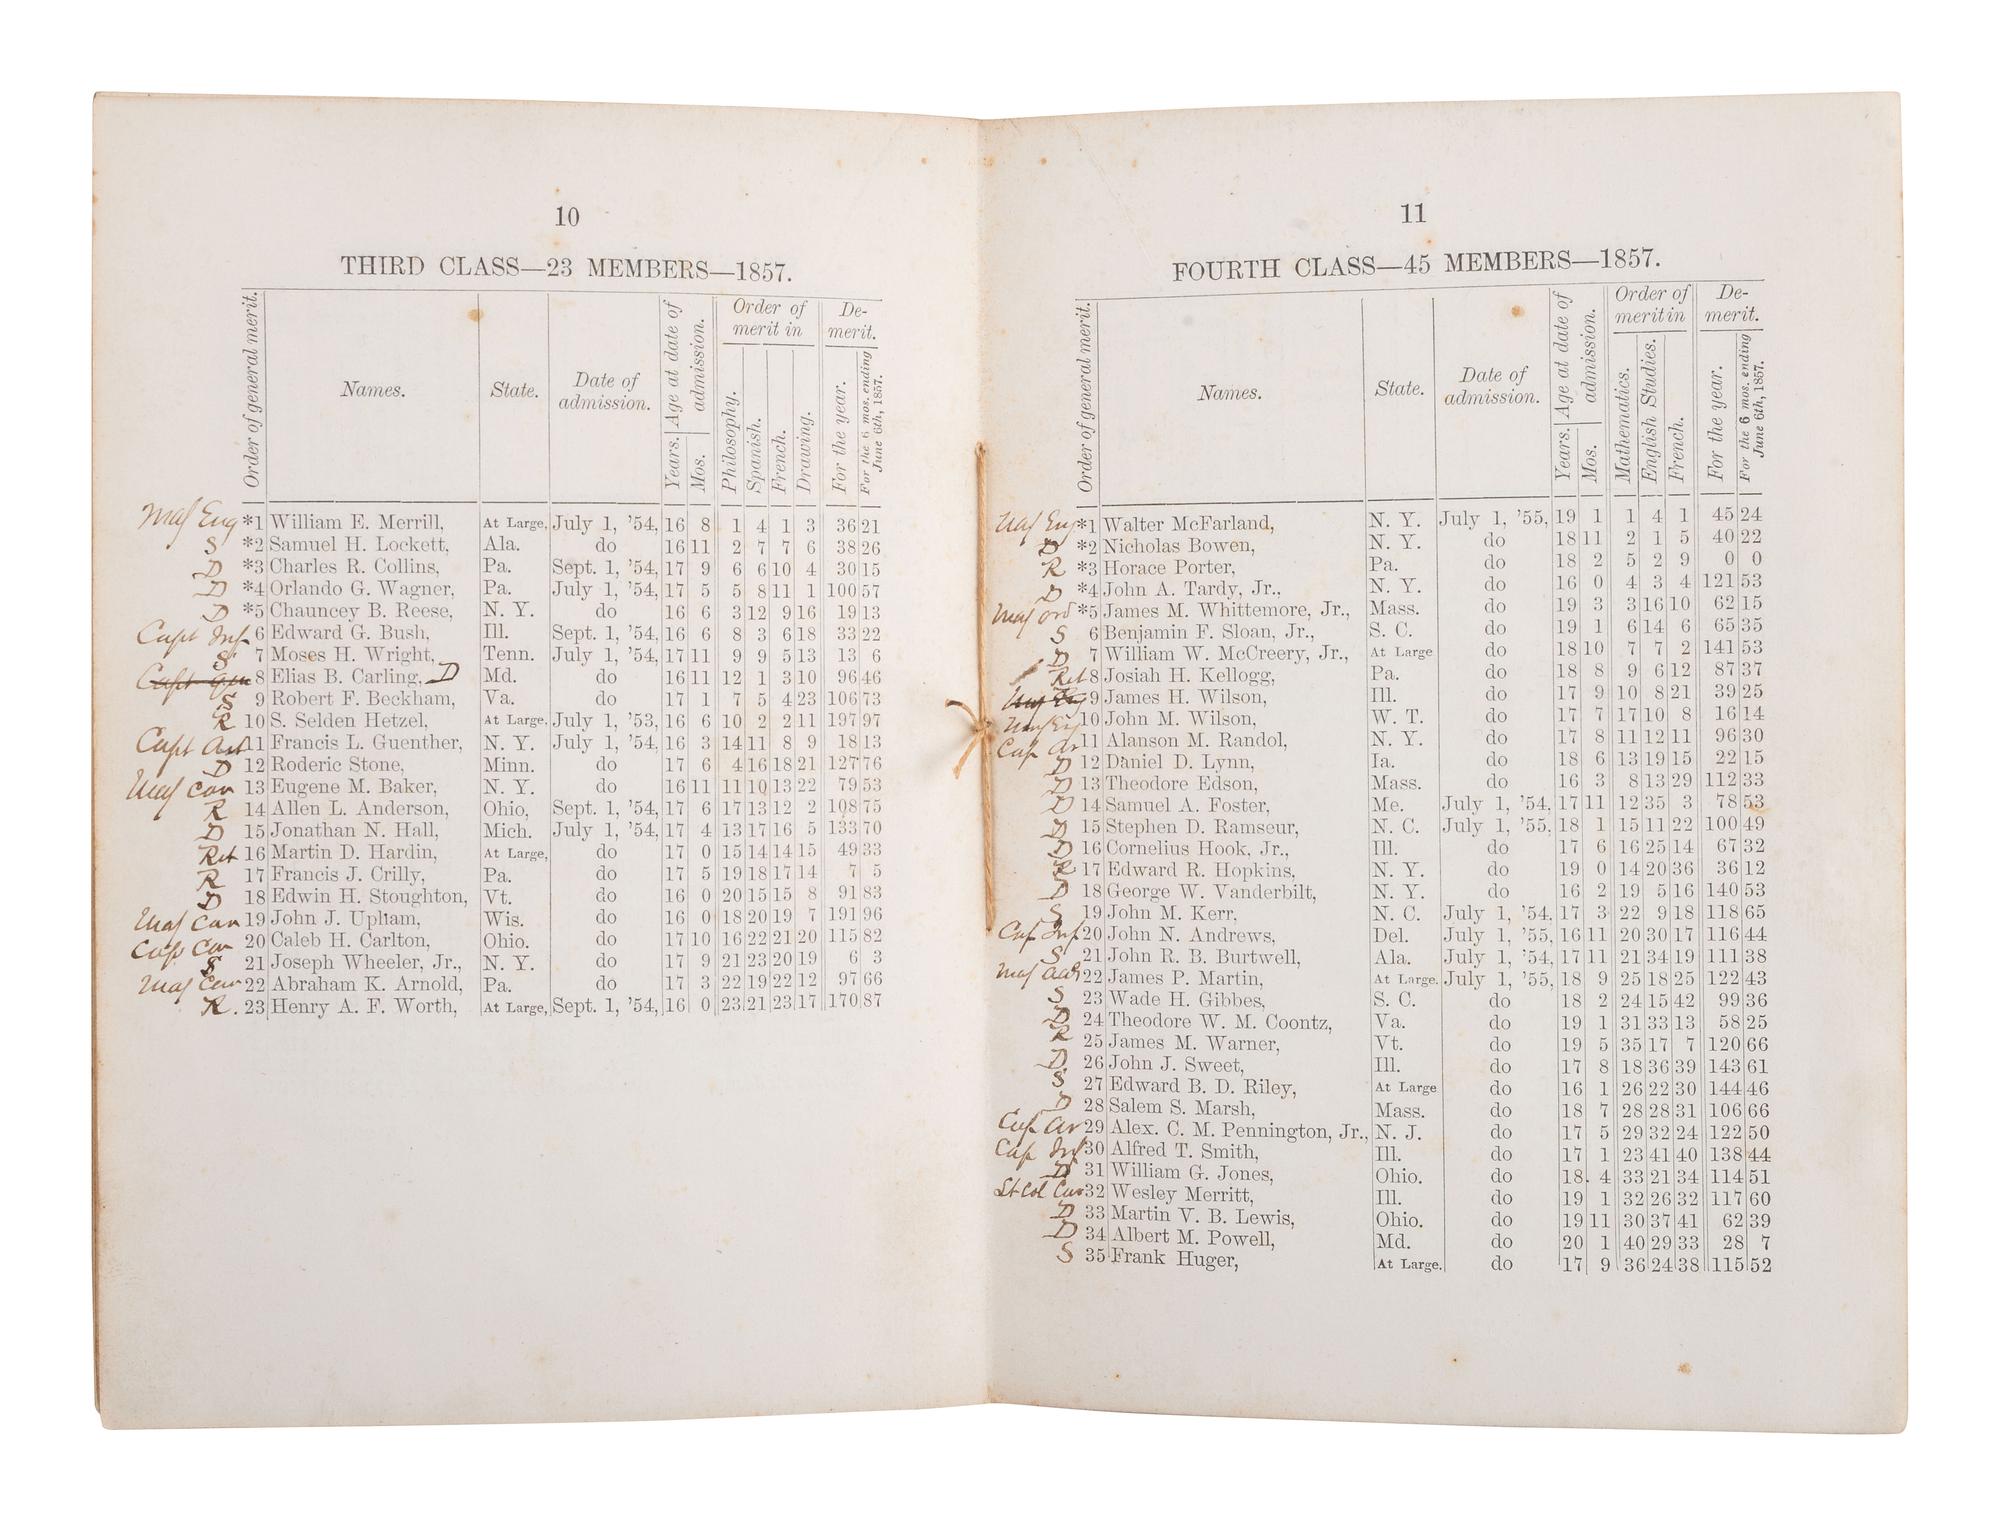 10
THIRD CLASS—23 MEMBERS—1857.
Order of general merit. Names. State. Date of admission. Age at date of admission. Years. Mos. Order of merit in Philosophy. Spanish. French. Drawing. De-merit. For the year. For the 6 mos. ending June 6th, 1857.
Maj Eng *1 William E. Merrill, At Large, July 1, '54, 16 8 1 4 1 3 36 21
S *2 Samuel H. Lockett, Ala. do 16 11 2 7 7 6 38 26
D *3 Charles R. Collins, Pa. Sept. 1, '54, 17 9 6 6 10 4 30 15
D *4 Orlando G. Wagner, Pa. July 1, '54, 17 5 5 8 11 1 100 57
D *5 Chauncey B. Reese, N. Y. do 16 6 3 12 9 16 19 13
Capt Inf 6 Edward G. Bush, Ill. Sept. 1, '54, 16 6 8 3 6 18 33 22
S 7 Moses H. Wright, Tenn. July 1, '54, 17 11 9 9 5 13 13 6
Capt 8 Elias B. Carling, D Md. do 16 11 12 1 3 10 96 46
S 9 Robert F. Beckham, Va. do 17 1 7 5 4 23 106 73
R 10 S. Selden Hetzel, At Large, July 1, '53, 16 6 10 2 2 11 197 97
Capt Art 11 Francis L. Guenther, N. Y. July 1, '54, 16 3 14 11 8 9 18 13
D 12 Roderic Stone, Minn. do 17 6 4 16 18 21 127 76
Maj Cav 13 Eugene M. Baker, N. Y. do 16 11 11 10 13 22 79 53
R 14 Allen L. Anderson, Ohio, Sept. 1, '54, 17 6 17 13 12 2 108 75
D 15 Jonathan N. Hall, Mich. July 1, '54, 17 4 13 17 16 5 133 70
Ret 16 Martin D. Hardin, At Large, do 17 0 15 14 14 15 49 33
R 17 Francis J. Crilly, Pa. do 17 5 19 18 17 14 7 5
D 18 Edwin H. Stoughton, Vt. do 16 0 20 15 15 8 91 83
Maj Cav 19 John J. Upham, Wis. do 16 0 18 20 19 7 191 96
Cap Cav 20 Caleb H. Carlton, Ohio. do 17 10 16 22 21 20 115 82
S 21 Joseph Wheeler, Jr., N. Y. do 17 9 21 23 20 19 6 3
Maj Cav 22 Abraham K. Arnold, Pa. do 17 3 22 19 22 12 97 66
R. 23 Henry A. F. Worth, At Large, Sept. 1, '54, 16 0 23 21 23 17 170 87
11
FOURTH CLASS—45 MEMBERS—1857.
Order of general merit. Names. State. Date of admission. Age at date of admission. Years. Mos. Order of merit in Mathematics. English Studies. French. De-merit. For the year. For the 6 mos. ending June 6th, 1857.
Maj Eng *1 Walter McFarland, N. Y. July 1, '55, 19 1 1 4 1 45 24
D *2 Nicholas Bowen, N. Y. do 18 11 2 1 5 40 22
R *3 Horace Porter, Pa. do 18 2 5 2 9 0 0
D *4 John A. Tardy, Jr., N. Y. do 16 0 4 3 4 121 53
Maj Ord *5 James M. Whittemore, Jr., Mass. do 19 3 3 16 10 62 15
S 6 Benjamin F. Sloan, Jr., S. C. do 19 1 6 14 6 65 35
D 7 William W. McCreery, Jr., At Large do 18 10 7 7 2 141 53
Ret 8 Josiah H. Kellogg, Pa. do 18 8 9 6 12 87 37
9 James H. Wilson, Ill. do 17 9 10 8 21 39 25
Maj Eng 10 John M. Wilson, W. T. do 17 7 17 10 8 16 14
Cap Ar 11 Alanson M. Randol, N. Y. do 17 8 11 12 11 96 30
D 12 Daniel D. Lynn, Ia. do 18 6 13 19 15 22 15
D 13 Theodore Edson, Mass. do 16 3 8 13 29 112 33
D 14 Samuel A. Foster, Me. July 1, '54, 17 11 12 35 3 78 53
D 15 Stephen D. Ramseur, N. C. July 1, '55, 18 1 15 11 22 100 49
D 16 Cornelius Hook, Jr., Ill. do 17 6 16 25 14 67 32
R 17 Edward R. Hopkins, N. Y. do 19 0 14 20 36 36 12
D 18 George W. Vanderbilt, N. Y. do 16 2 19 5 16 140 53
S 19 John M. Kerr, N. C. July 1, '54, 17 3 22 9 18 118 65
Cap Inf 20 John N. Andrews, Del. July 1, '55, 16 11 20 30 17 116 44
S 21 John R. B. Burtwell, Ala. July 1, '54, 17 11 21 34 19 111 38
Maj 22 James P. Martin, At Large. July 1, '55, 18 9 25 18 25 122 43
S 23 Wade H. Gibbes, S. C. do 18 2 24 15 42 99 36
D 24 Theodore W. M. Coontz, Va. do 19 1 31 33 13 58 25
R 25 James M. Warner, Vt. do 19 5 35 17 7 120 66
D 26 John J. Sweet, Ill. do 17 8 18 36 39 143 61
S 27 Edward B. D. Riley, At Large do 16 1 26 22 30 144 46
D 28 Salem S. Marsh, Mass. do 18 7 28 28 31 106 66
Cap Ar 29 Alex. C. M. Pennington, Jr., N. J. do 17 5 29 32 24 122 50
Cap Inf 30 Alfred T. Smith, Ill. do 17 1 23 41 40 138 44
D 31 William G. Jones, Ohio. do 18. 4 33 21 34 114 51
Lt Col Cav 32 Wesley Merritt, Ill. do 19 1 32 26 32 117 60
D 33 Martin V. B. Lewis, Ohio. do 19 11 30 37 41 62 39
D 34 Albert M. Powell, Md. do 20 1 40 29 33 28 7
S 35 Frank Huger, At Large. do 17 9 36 24 38 115 52